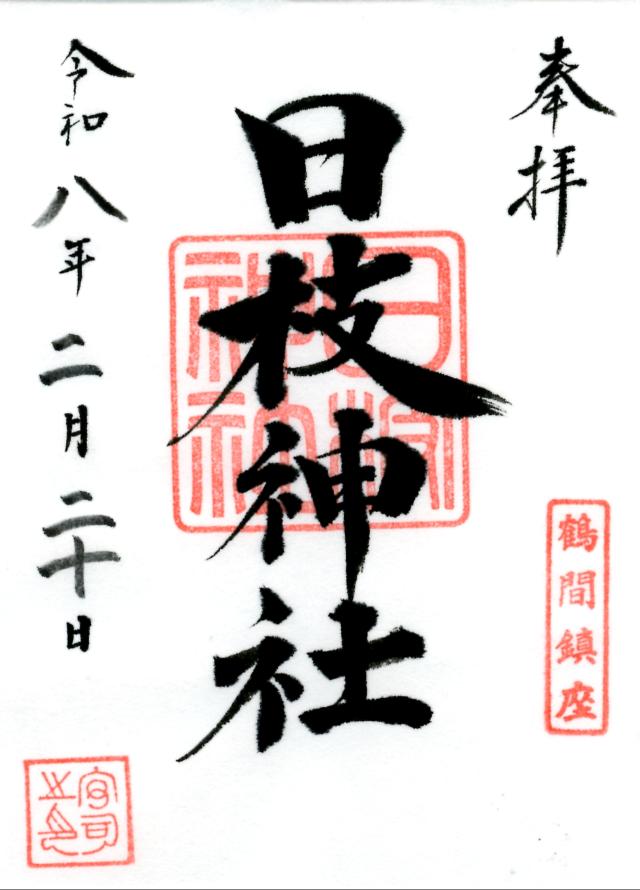 奉拝
鶴間鎮座
日枝神社
日枝神社
令和八年二月二十日
宮司之印